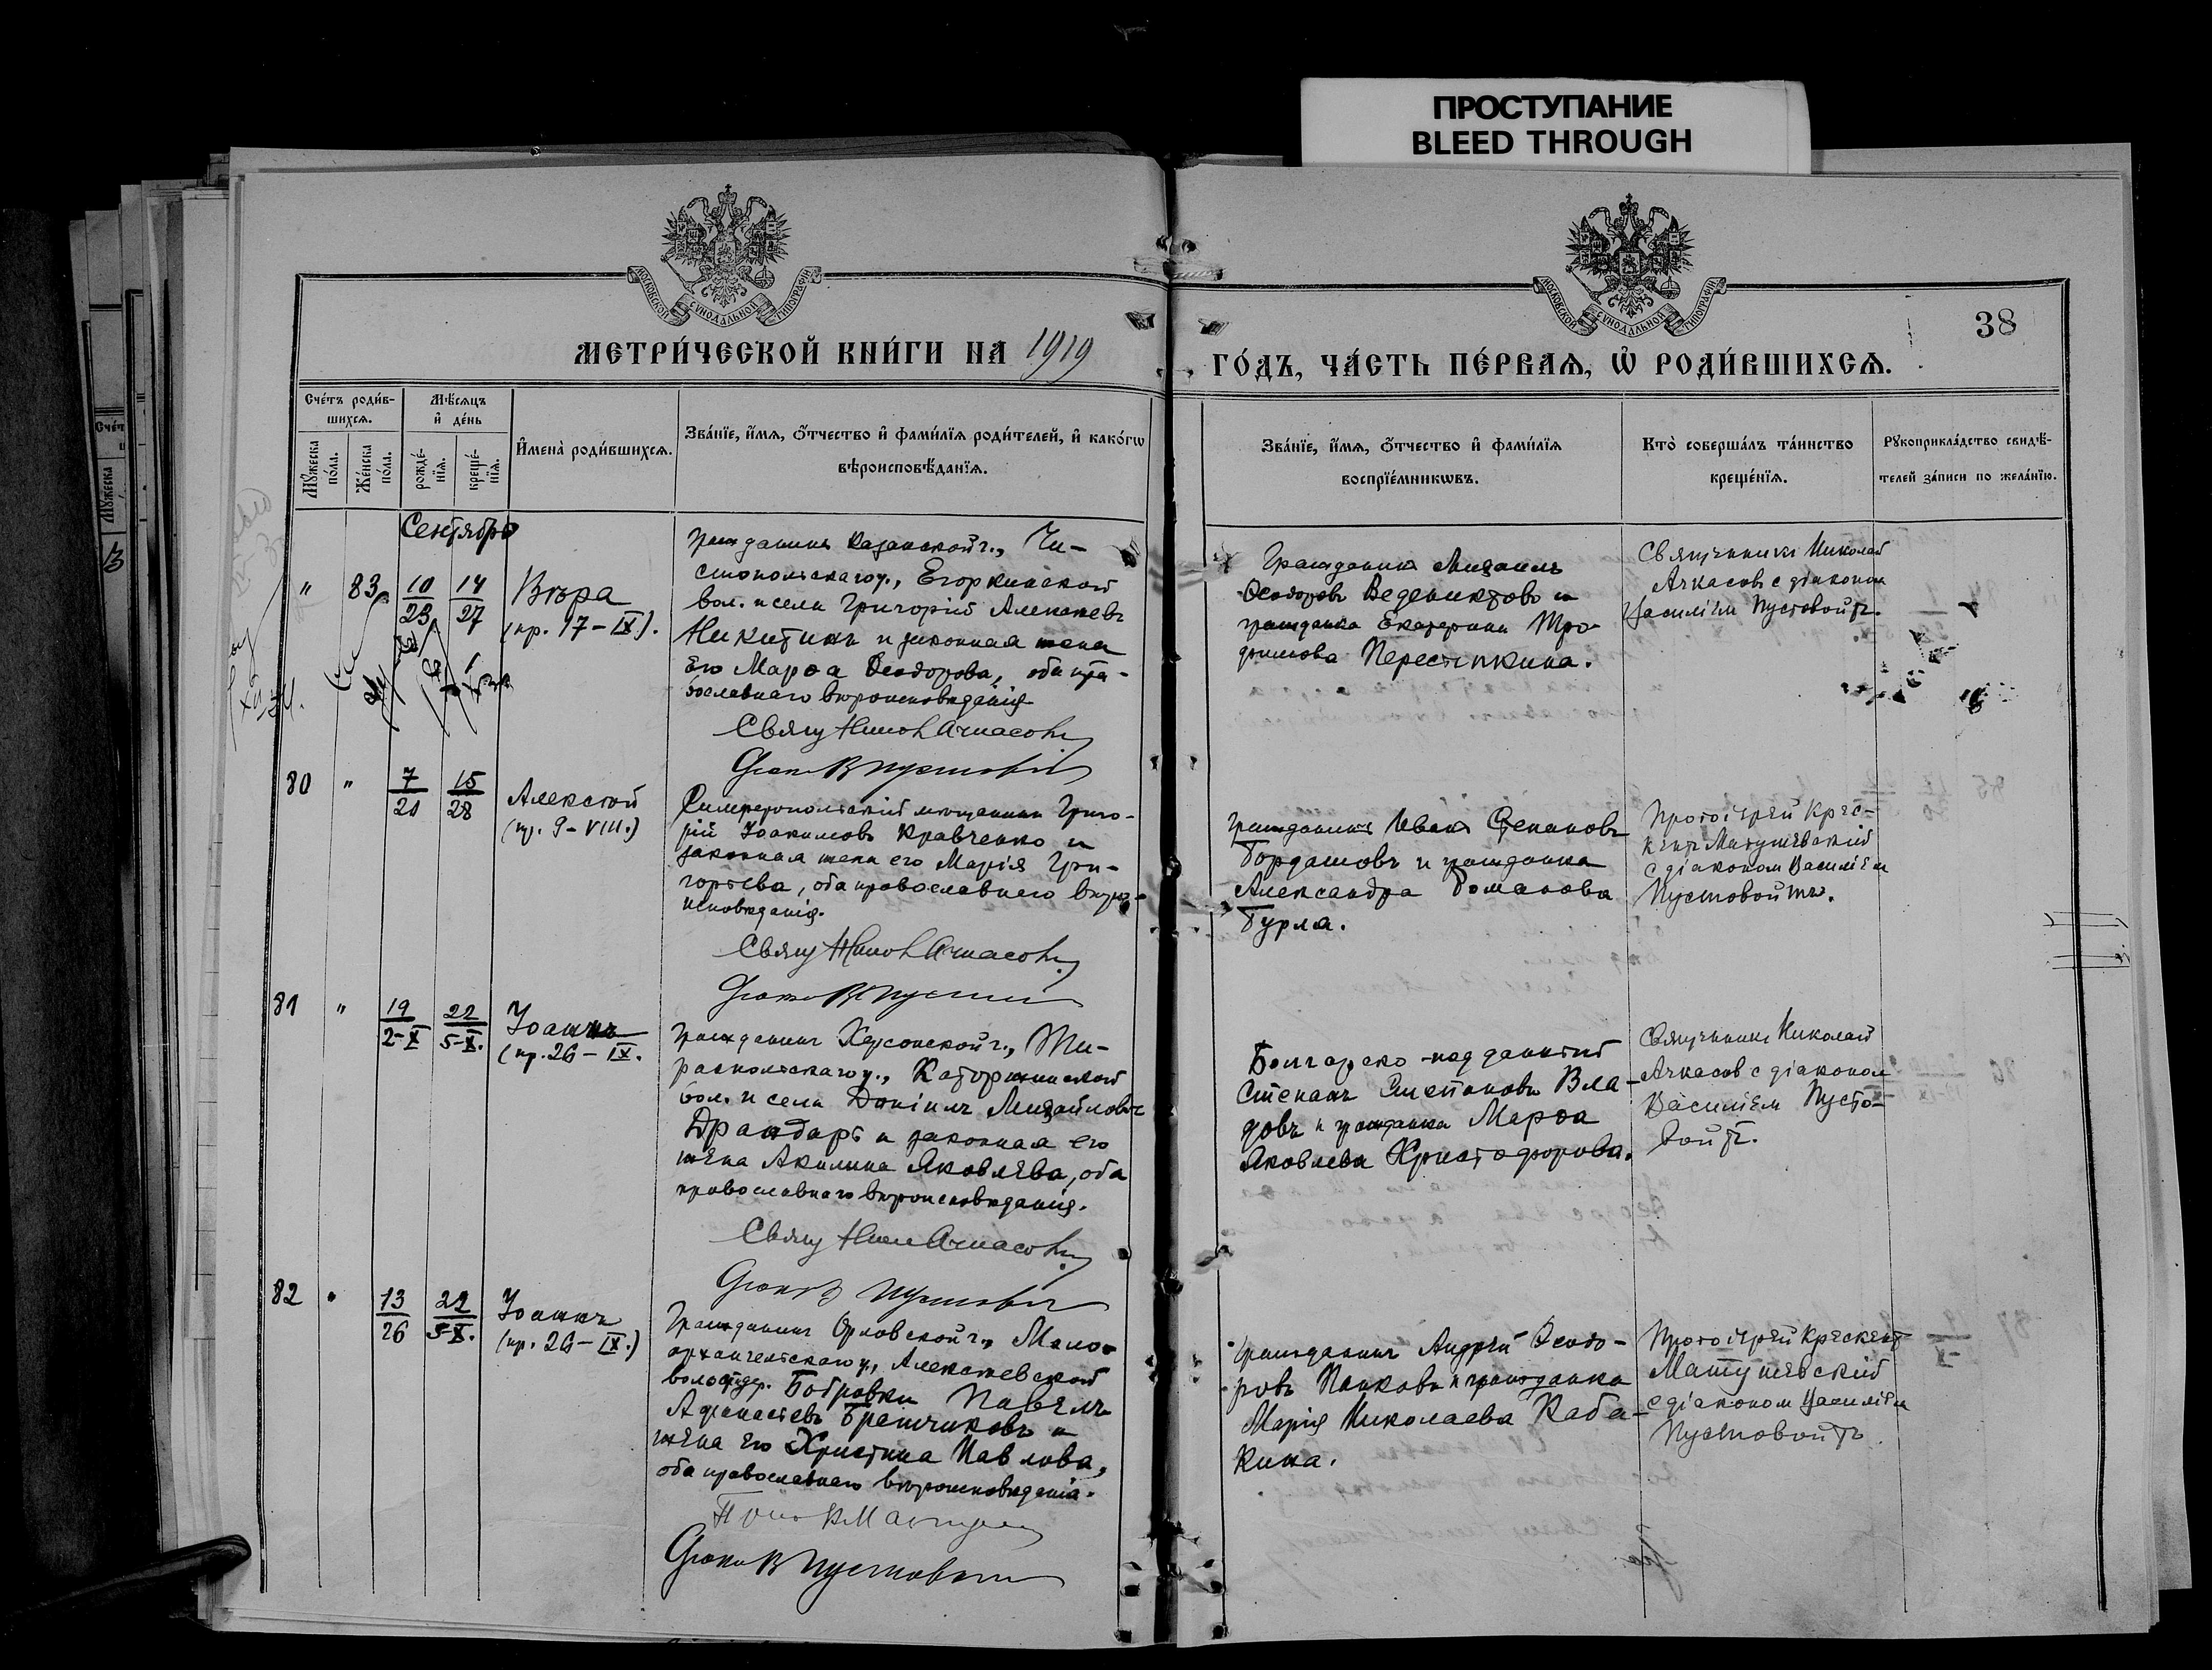 ПРОСТУПАНИЕ
BLEED THROUGH
МОСКОВСКОЙ СѴНОДАЛЬНОЙ ТИПОГРАФІИ
МОСКОВСКОЙ СѴНОДАЛЬНОЙ ТИПОГРАФІИ
38
МЕТРИ́ЧЕСКОЙ КНИ́ГИ НА 1919
ГО́ДЪ, ЧА́СТЬ ПЕ́РВАѦ, Ѡ҆ РОДИ́ВШИХСѦ.
Сче́тъ роди́в-
шихсѧ.
Мꙋ́жеска по́ла.
Же́нска по́ла.
Мѣ́сѧцъ
и҆ де́нь
рожде́-
нїѧ.
креще́-
нїѧ.
И҆мена̀ роди́вшихсѧ.
Зва́нїе, и҆́мѧ, ѻ҆́тчество и҆ фами́лїѧ роди́телей, и҆ како́гѡ
вѣроисповѣ́данїѧ.
Зва́нїе, и҆́мѧ, ѻ҆́тчество и҆ фами́лїѧ
воспрїе́мникѡвъ.
Кто̀ соверша́лъ та́инство
креще́нїѧ.
Рꙋкоприкла́дство свидѣ́-
телей за́писи по жела́нїю.
Сентябрь
" 83 10/23 14/27 Вѣра
(пр. 17-IX).
Гражданинъ Казанской г., Чи-
стопольскаго у., Егоркинской
вол. и села Григорій Алексѣевъ
Никитинъ и законная жена
его Марѳа Ѳеодорова, оба пра-
вославнаго вѣроисповѣданія
Свящ Никол Ачкасовъ
Діак В Пустовой
Гражданинъ Михаилъ
Ѳеодоровъ Веденіктовъ и
гражданка Екатерина Тро-
фимова Пересыпкина.
Священникъ Николай
Ачкасовъ с діакономъ
Василіем Пустовойтъ.
80 " 7/20 15/28 Алексѣй
(пр. 9-VIII.)
Симферопольскій мѣщанинъ Григо-
рій Іоакимовъ Кравченко и
законная жена его Марія Гри-
горьева, оба православнаго вѣро-
исповѣданія.
Свящ Никол Ачкасовъ
Гражданинъ Иванъ Степановъ
Бордашовъ и гражданка
Александра Романова
Бурла.
Протоіерей Крес-
кентъ Матушевскій
с діакономъ Василіем
Пустовойтъ.
81 " 19/2-X 22/5-X. Іоаннъ
(пр. 26-IX.
Гражданинъ Херсонской г., Ти-
распольскаго у., Каторжинской
вол. и села Даніилъ Михайловъ
Драндарь и законная его
жена Акилина Яковлева, оба
православнаго вѣроисповѣданія.
Свящ Ник Ачкасовъ
Діак В Пустовойт
Болгарско-подданный
Степанъ Степановъ Вла-
довъ и гражданка Марѳа
Яковлева Христофорова.
Священникъ Николай
Ачкасов с діаконом
Василіем Пусто-
войтъ.
82 " 13/26 22/5-X. Іоаннъ
(пр. 26-IX.)
Гражданинъ Орловской г., Мало-
архангельскаго у., Алексѣевской
волости дер. Бобровки Павелъ
Аѳанасіевъ Гречиковъ и
жена его Христина Павлова,
оба православнаго вѣроисповѣданія.
Діак В Пустовойт
Гражданинъ Андрей Ѳеодо-
ровъ Панковъ и гражданка
Марія Николаева Каба-
кина.
Протоіерей Крескент
Матушевский
с діаконом Василіем
Пустовойтъ